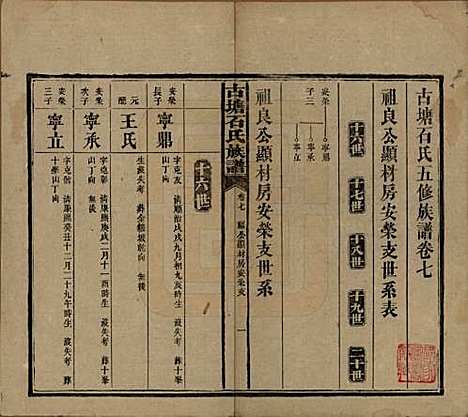 古塘石氏五修族譜卷七
祖良公顯材房安榮支世系表
十六世 十七世 十八世 十九世 二十世
安榮
子三
寧鼎
寧承
寧立
祖良公顯材房安榮支世系
古塘石氏族譜
卷七
公顯材房安榮支
一
十六世
安榮
長子
寧鼎
字克友
清順治戊戌九月初九辰時生
歿失考
葬十
山丁向
元配
王氏
生歿失考
乾向
安榮
次子
寧承
字克
清康熙庚戌二月十一酉時生
歿失考
葬十
山丁向
安榮
三子
寧立
字克
清康熙癸丑十二月二十九午時生
歿失考
葬
十
山丁向